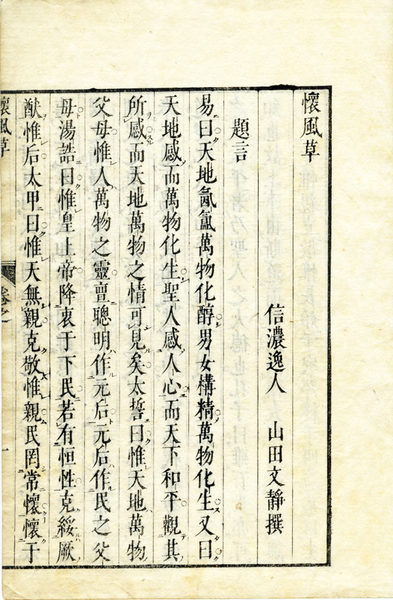 懷風草
信濃逸人 山田文靜撰
題言
易曰天地氤氳萬物化醇男女構精萬物化生又曰
天地感而萬物化生聖人感人心而天下和平觀其
所感而天地萬物之情可見矣太誓曰惟天地萬物
父母惟人萬物之靈亶聰明作元后元后作民之父
母湯誥曰惟皇上帝降衷于下民若有恒性克綏厥
猷惟后太甲曰惟天無親克敬惟親民罔常懷懷于
懷風草